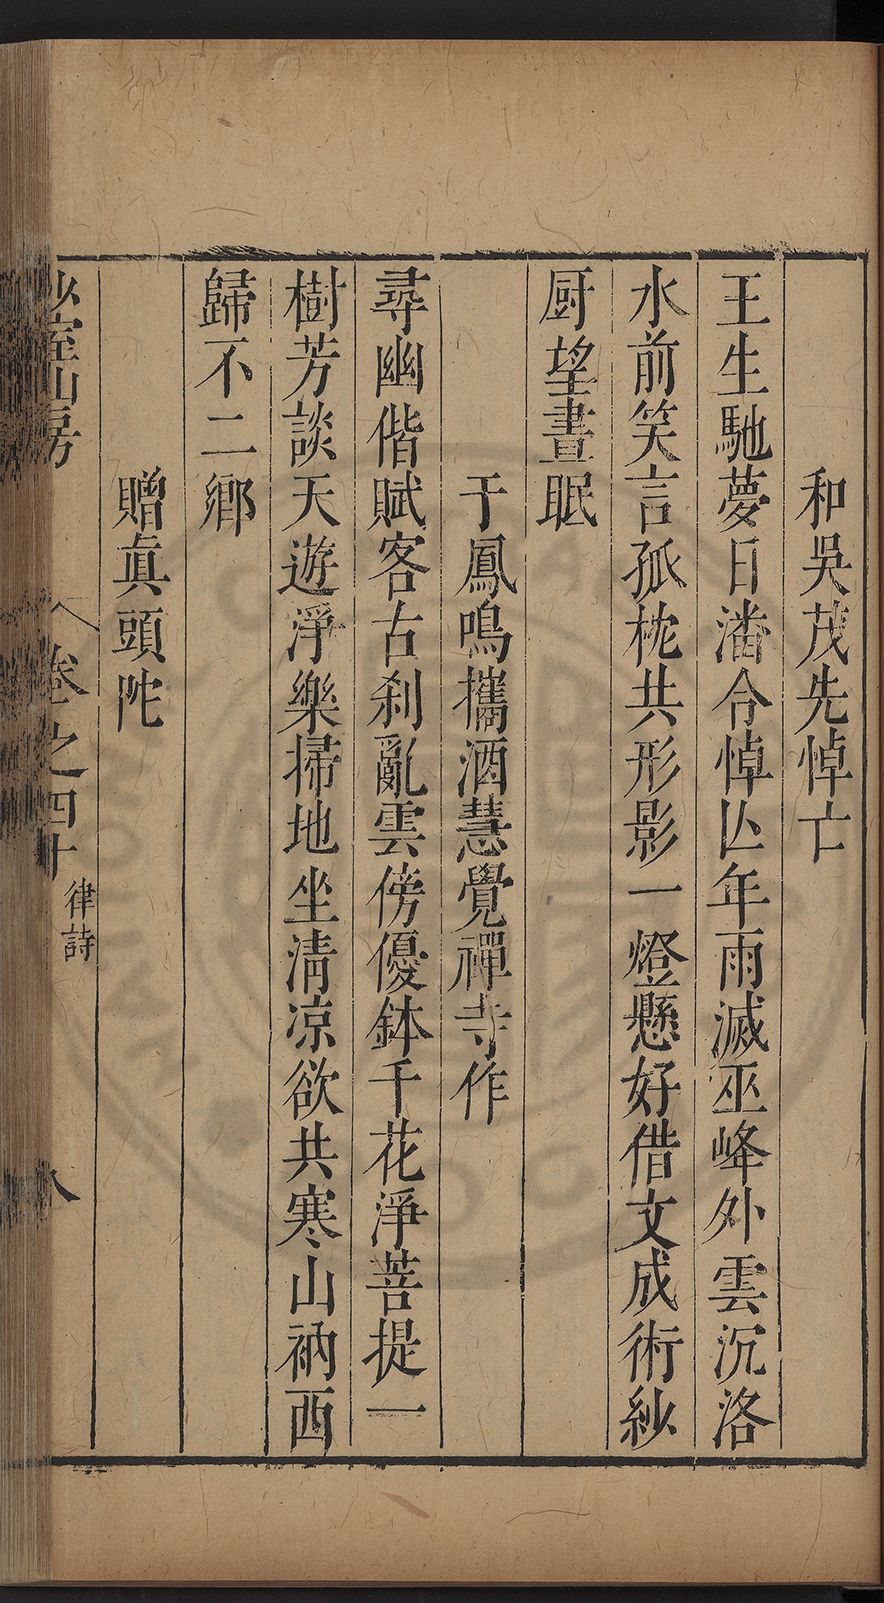 和吳茂先悼亡
王生馳夢日潘令悼亾年雨滅巫峰外雲沉洛
水前笑言孤枕共形影一燈懸好借文成術紗
厨望晝眠
于鳳鳴攜酒慧覺禪寺作
尋幽偕賦客古刹亂雲傍優鉢千花淨菩提一
樹芳談天遊淨樂掃地坐清凉欲共寒山衲西
歸不二鄉
贈眞頭陀
少室山房
卷之四十
律詩
八